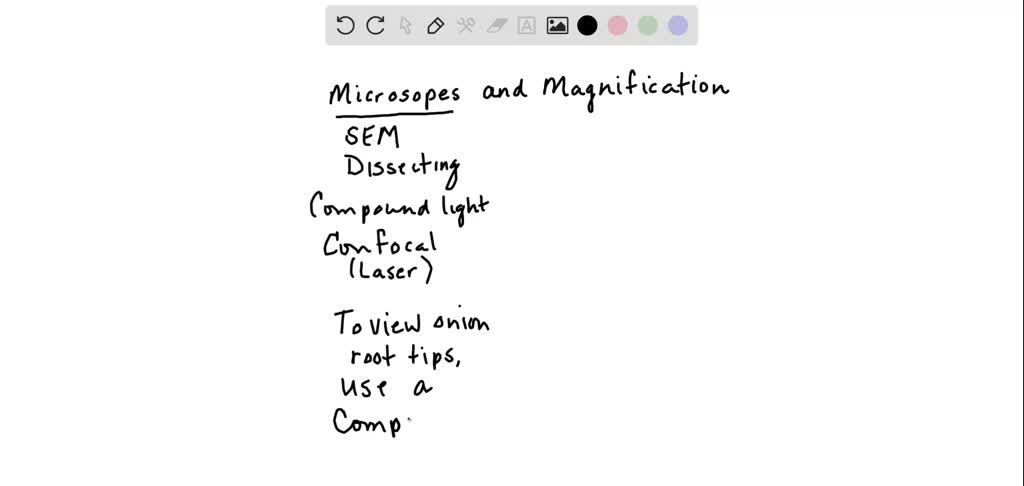 Microsopes and Magnification
SEM
Dissecting
Compound light
Confocal
(Laser)
To view onion
root tips,
use a
Comp